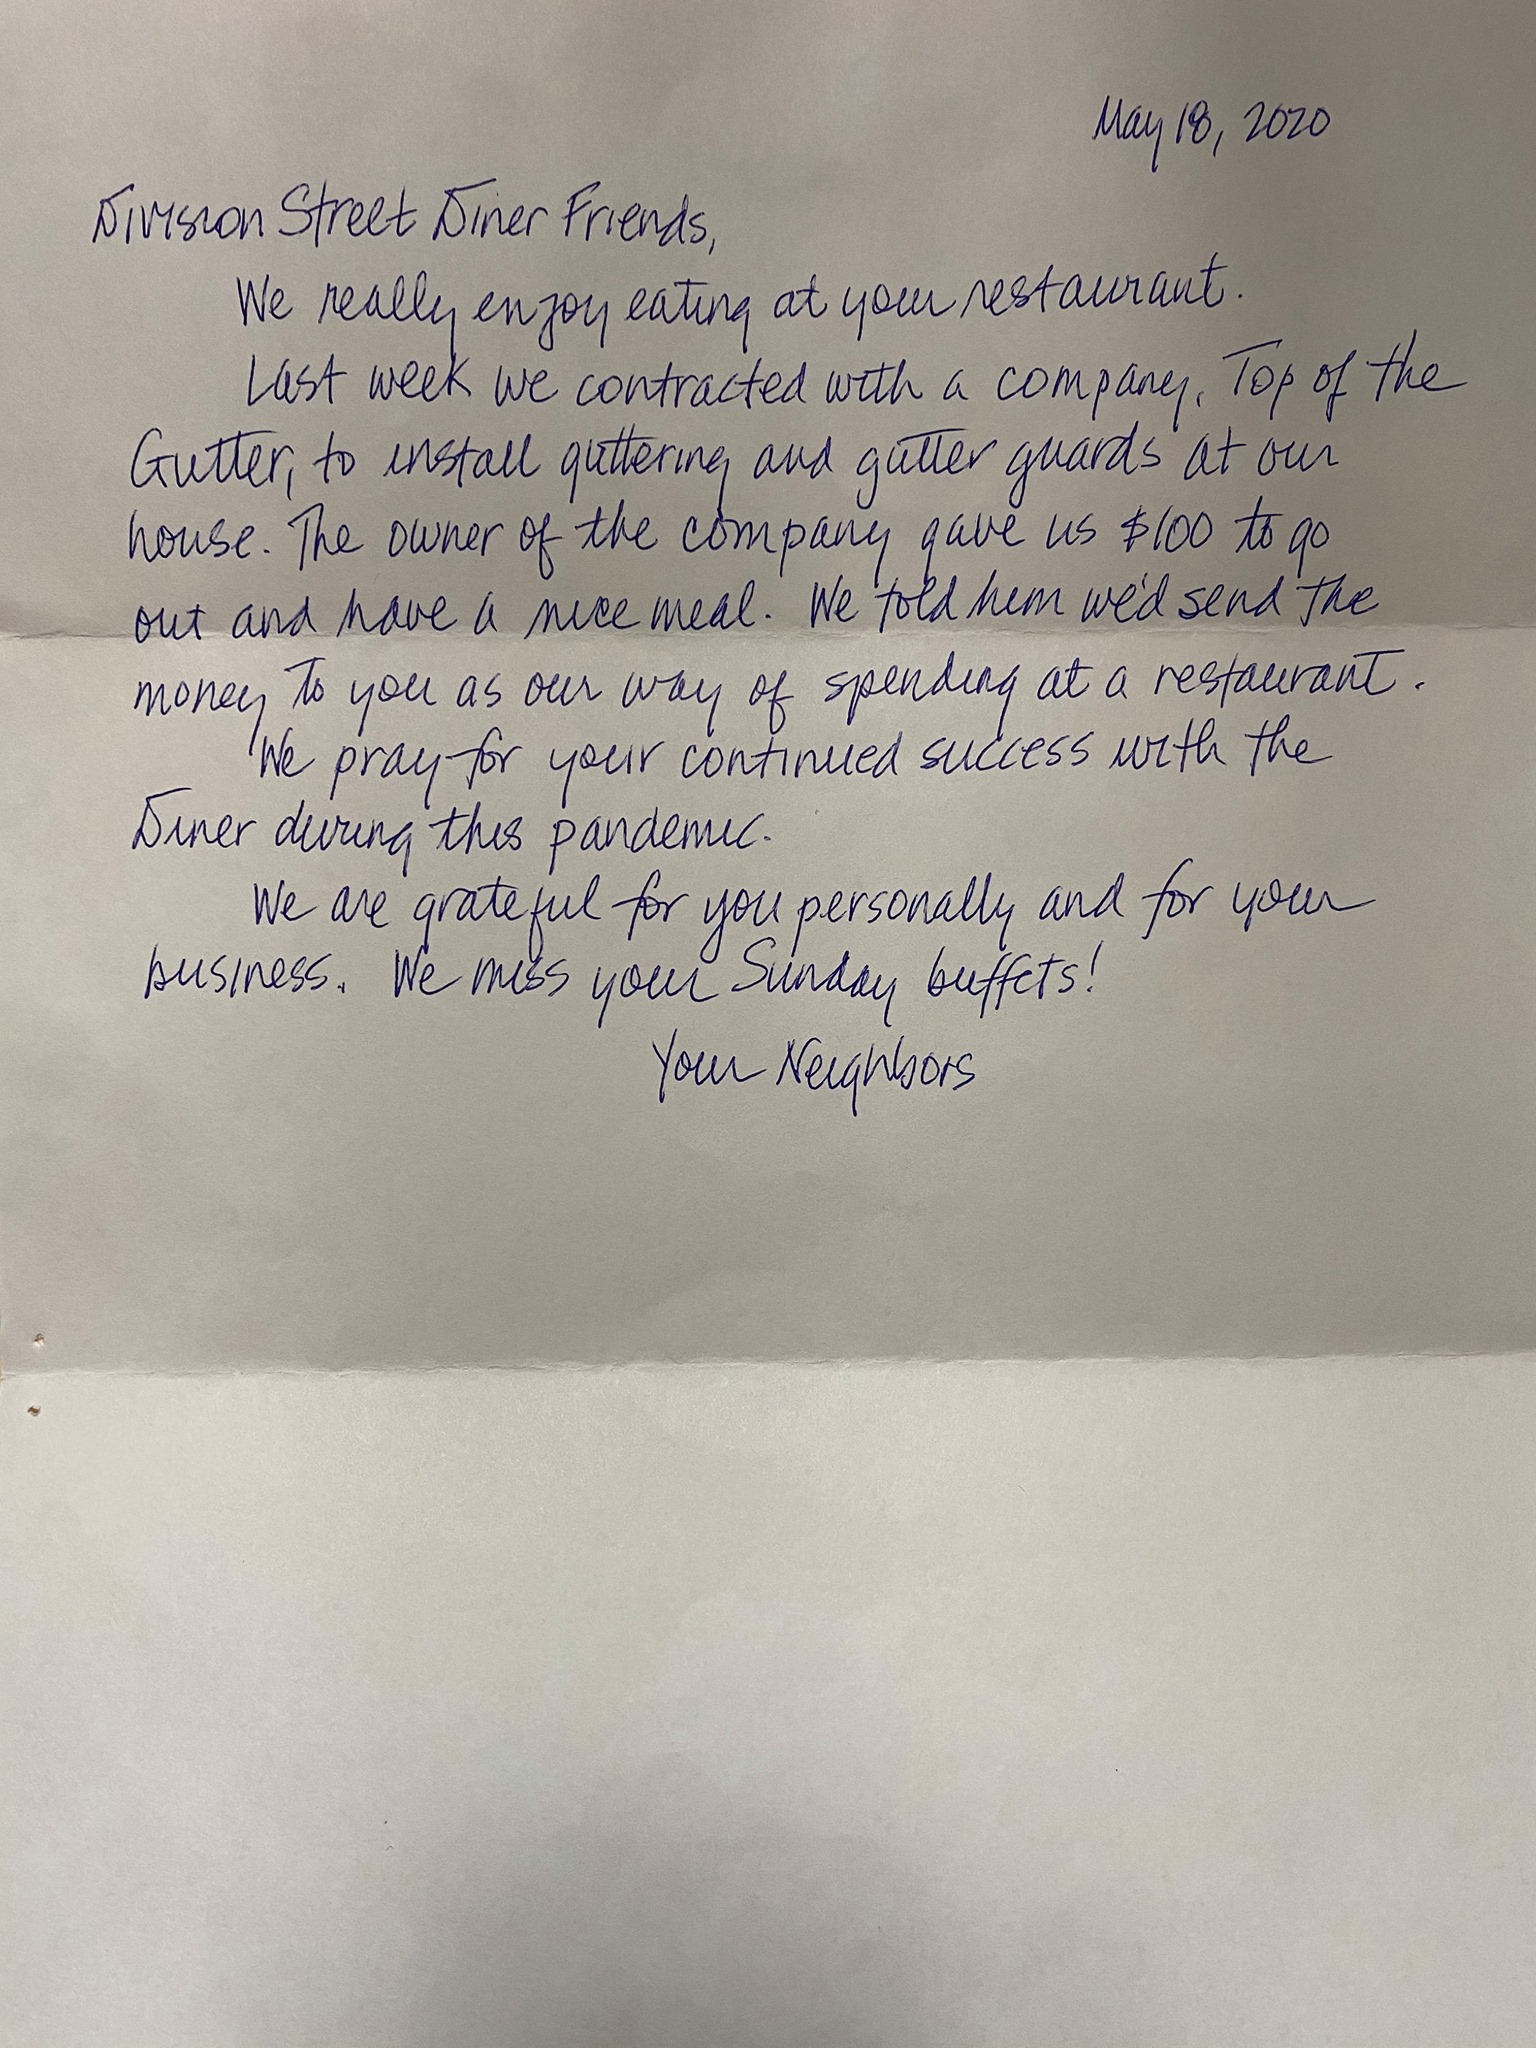 May 18, 2020
Division Street Diner Friends,
We really enjoy eating at your restaurant.
Last week we contracted with a company, Top of the
Gutter, to install guttering and gutter guards at our
house. The owner of the company gave us $100 to go
out and have a nice meal. We told him we'd send the
money to you as our way of spending at a restaurant.
We pray for your continued success with the
Diner during this pandemic.
We are grateful for you personally and for your
business. We miss your Sunday buffets!
Your Neighbors